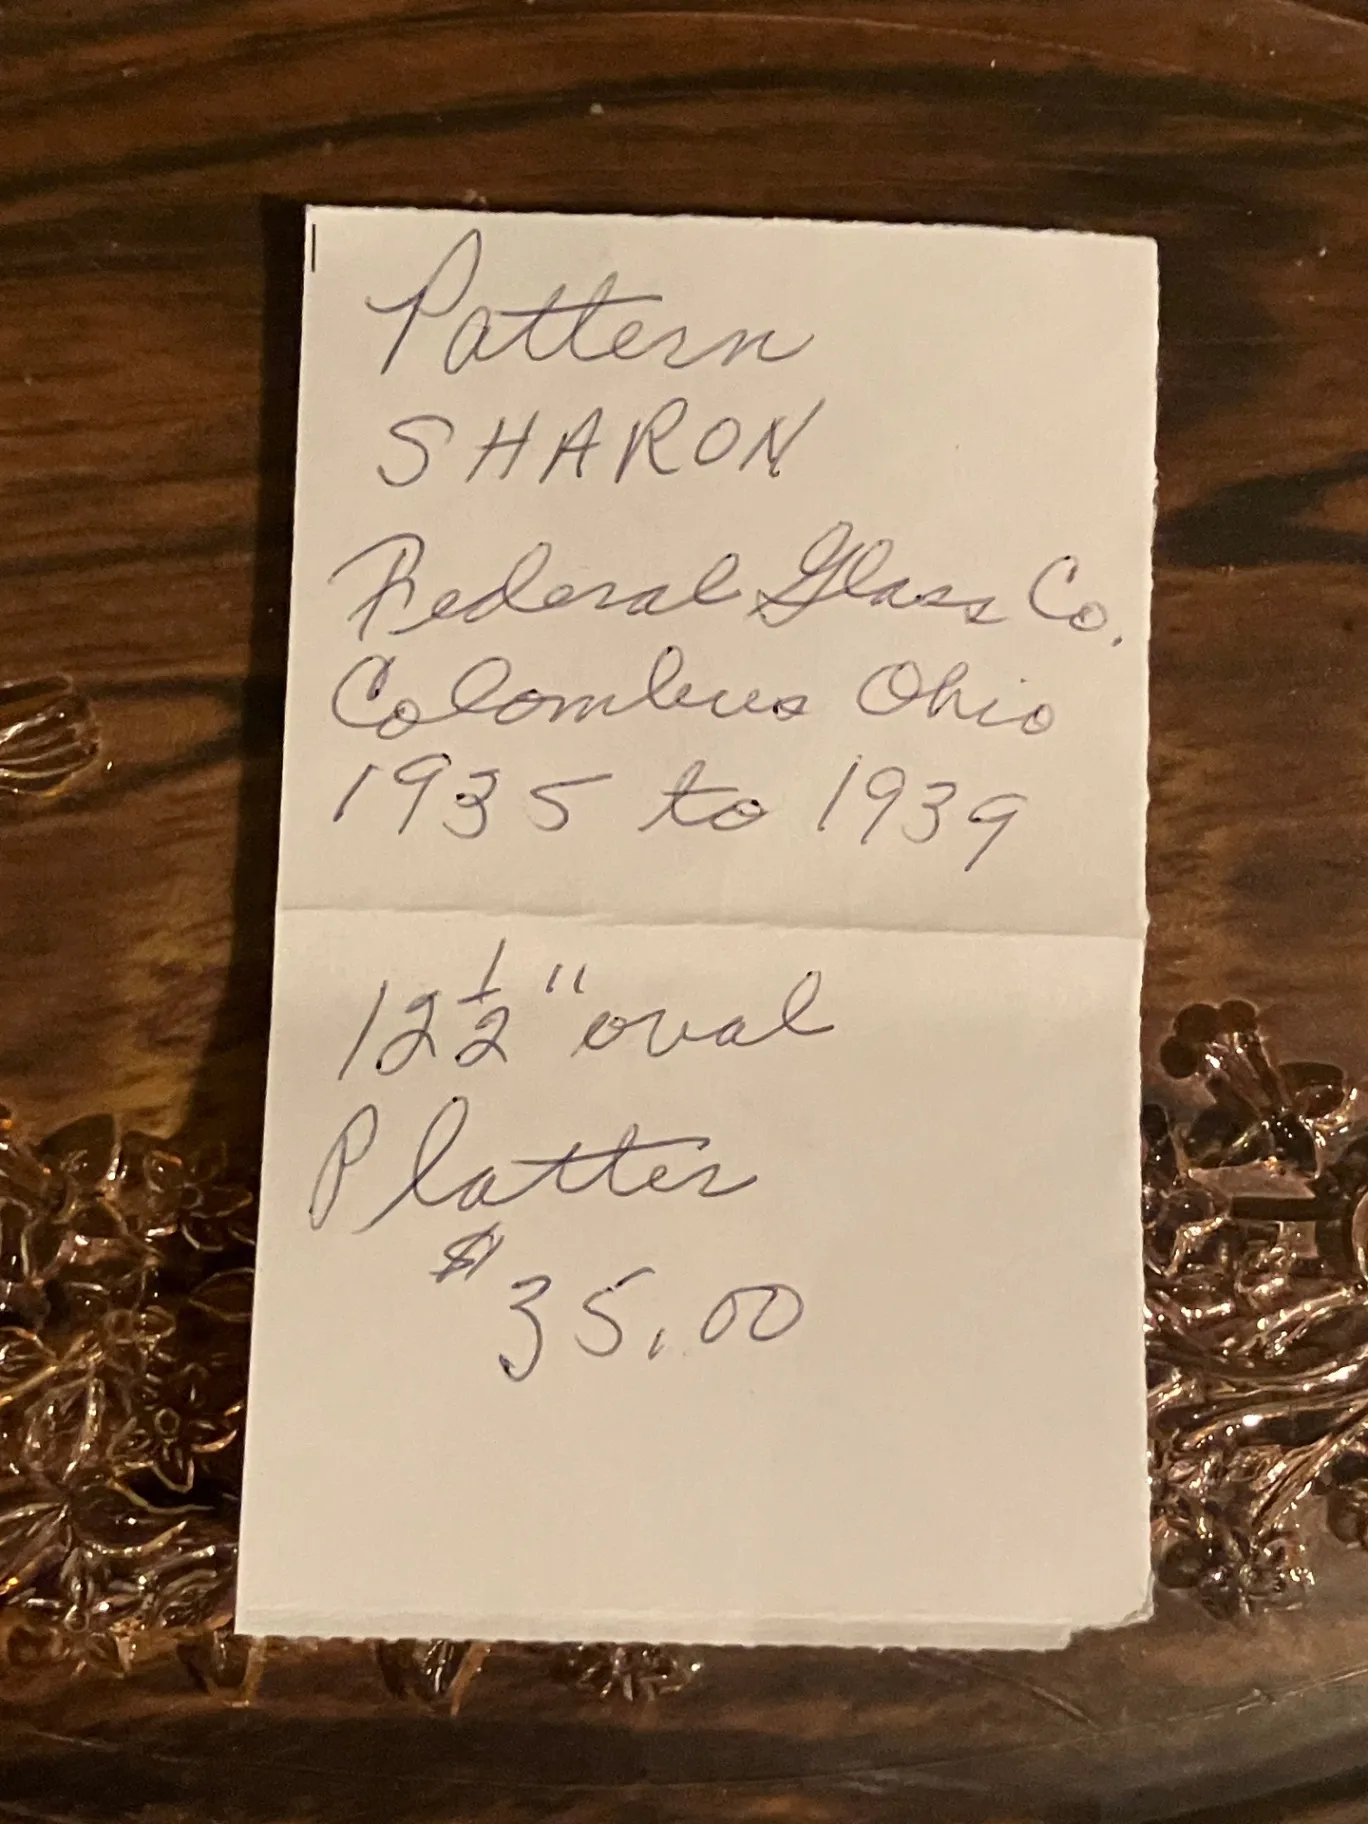 Pattern
SHARON
Federal Glass Co.
Colombus Ohio
1935 to 1939
12 1/2" oval
Platter
$35.00